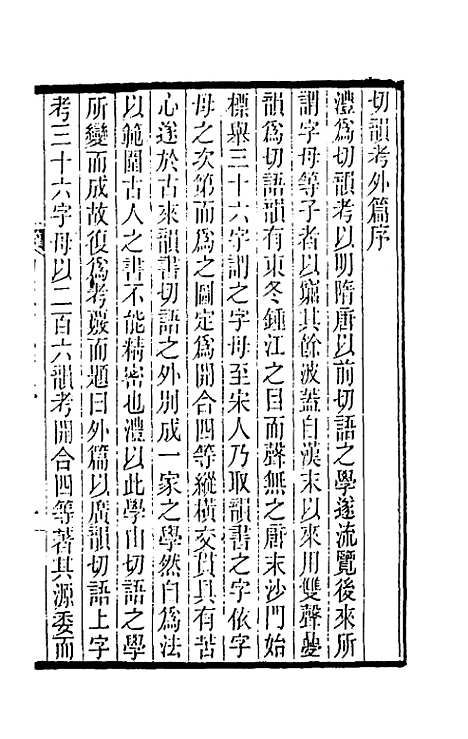 切韻考外篇序
澧爲切韻考以明隋唐以前切語之學遂流覽後來所
謂字母等子者以窮其餘波蓋自漢末以來用雙聲㬪
韻爲切語韻有東冬鍾江之目而聲無之唐末沙門始
標舉三十六字謂之字母至宋人乃取韻書之字依字
母之次第而爲之圖定爲開合四等縱橫交貫具有苦
心遂於古來韻書切語之外別成一家之學然自爲法
以範圍古人之書不能精密也澧以此學由切語之學
所變而成故復爲考覈而題曰外篇以廣韻切語上字
考三十六字母以二百六韻考開合四等著其源委而